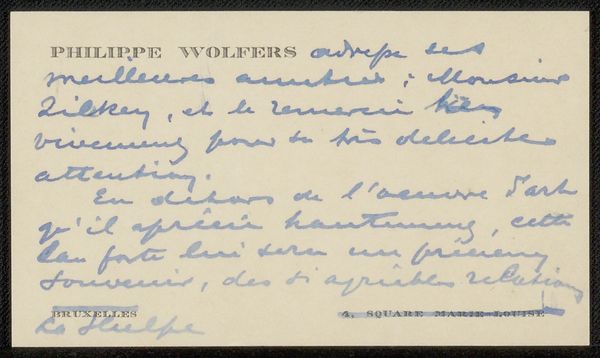 PHILIPPE WOLFERS adresse ses
meilleures amitiés à Monsieur
Zilcken, et le remercie bien
vivement pour sa très délicate
attention.
En dehors de l'oeuvre d'art
qu'il apprécie hautement, cette
Eau forte lui sera un précieux
souvenir, des si agréables relations
BRUXELLES 4, SQUARE MARIE-LOUISE
La Hulpe